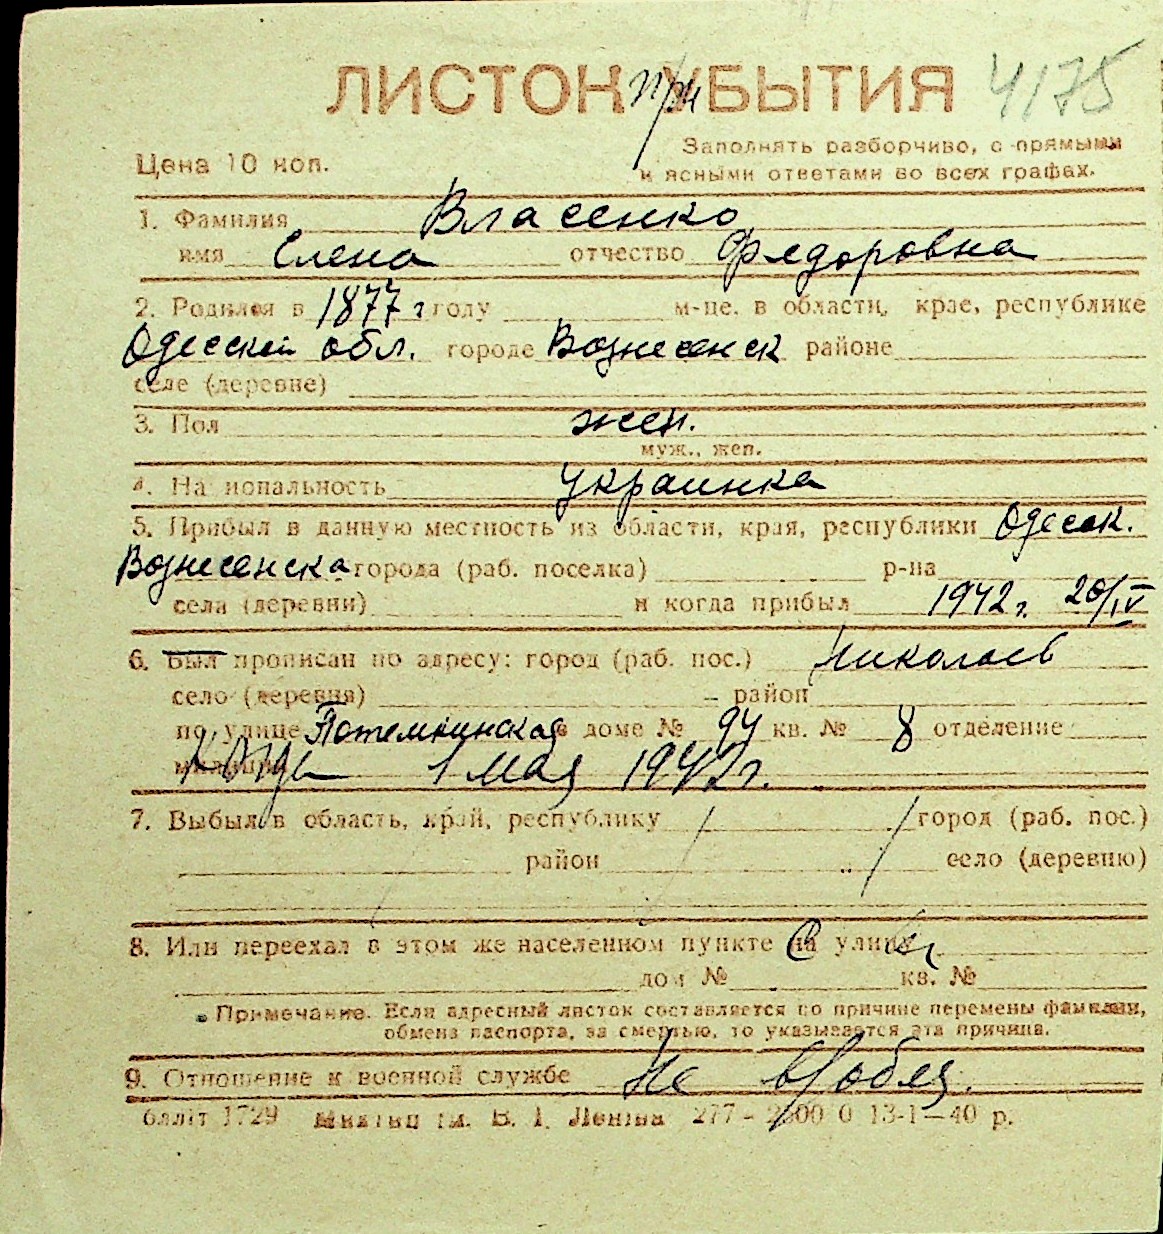 ЛИСТОК при УБЫТИЯ 4175
Цена 10 коп.
Заполнять разборчиво, с прямыми
и ясными ответами во всех графах.
1. Фамилия Власенко
имя Елена отчество Федоровна
2. Родился в 1877 г году м-це. в области, крае, республике
Одесской обл. городе Вознесенск районе
селе (деревне)
3. Пол жен.
муж., жен.
4. Национальность украинка
5. Прибыл в данную местность из области, края, республики Одесск.
Вознесенска города (раб. поселка) р-на
села (деревни) и когда прибыл 1942 г. 20/IV
6. Был прописан по адресу: город (раб. пос.) Николаев
село (деревня) район
по улице Потемкинская в доме № 94 кв. № 8 отделение
милиции когда 1 мая 1942 г.
7. Выбыл в область, край, республику город (раб. пос.)
район село (деревню)
8. Или переехал в этом же населенном пункте на улицу
дом № кв. №
Примечание. Если адресный листок составляется по причине перемены фамилии,
обмена паспорта, за смертью, то указывается эта причина.
9. Отношение к военной службе не в/обяз.
бллiт 1729 В. I. Ленiна 277 - 2500 0 13-1-40 р.